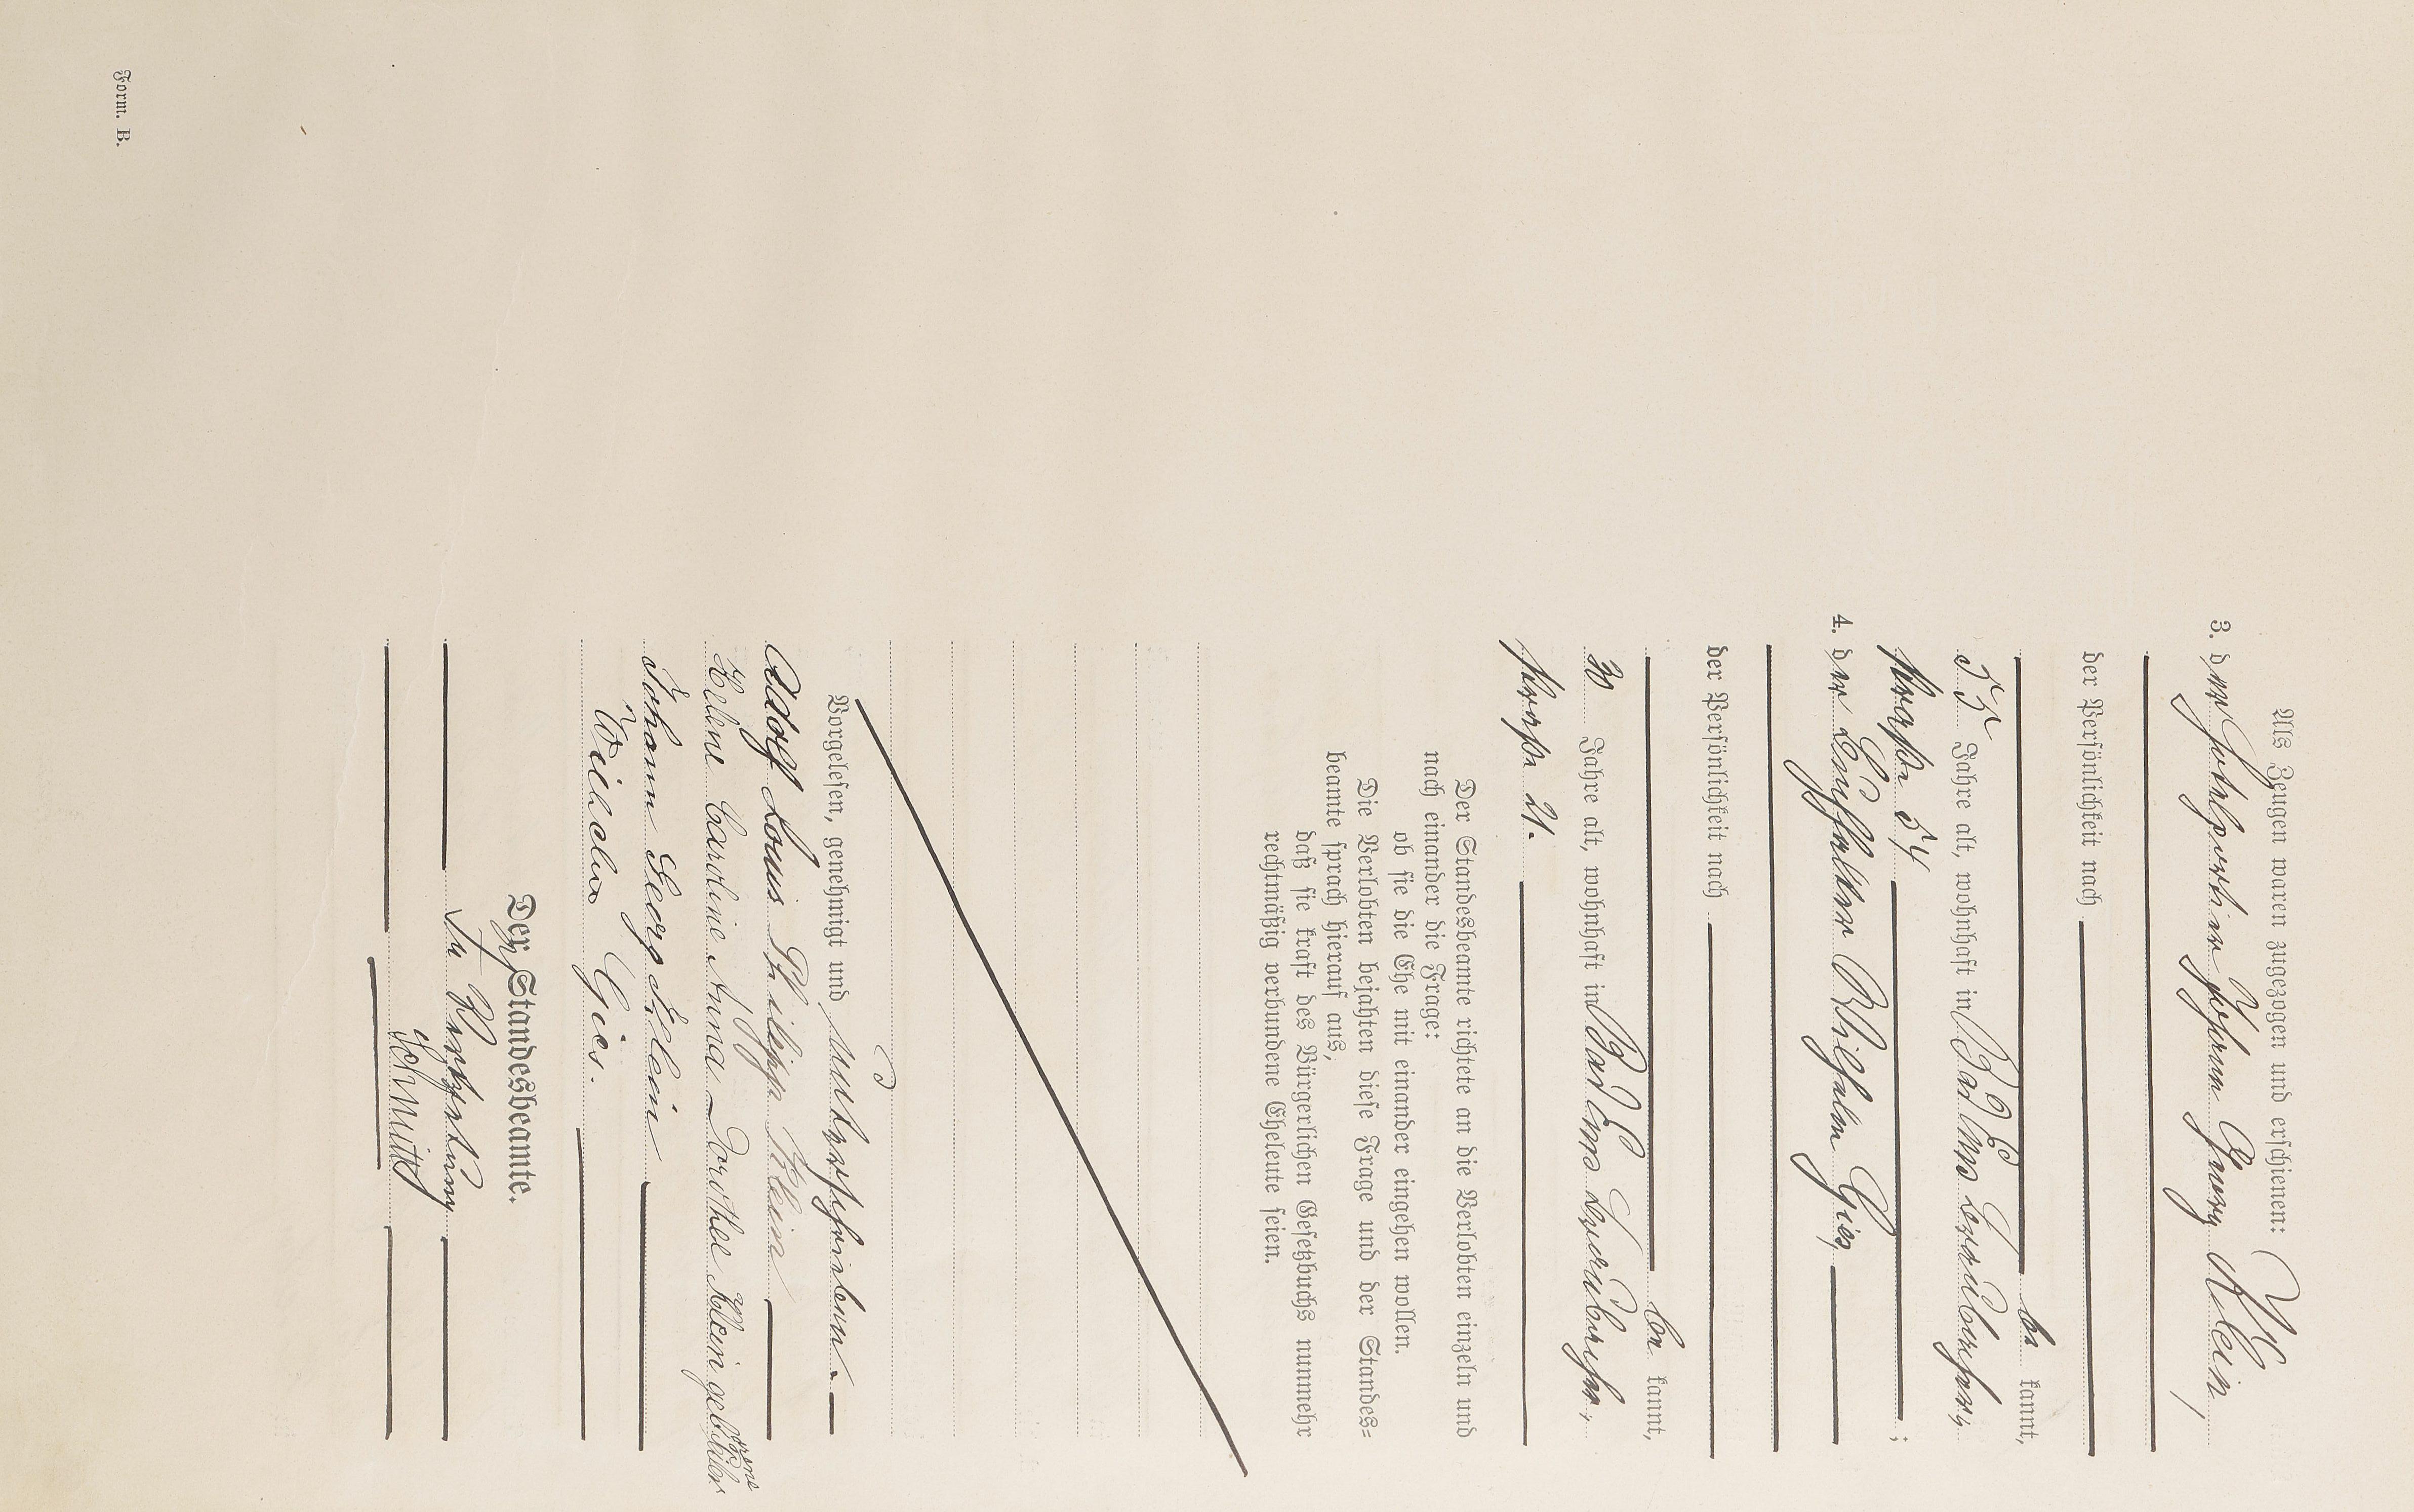 Als Zeugen waren zugezogen und erschienen:
3. der Johann Georg Klein,
der Persönlichkeit nach
be kannt,
55 Jahre alt, wohnhaft in Bad Ems
straße 54 ;
4. der Wilhelm Gies,
der Persönlichkeit nach
be kannt,
30 Jahre alt, wohnhaft in Bad Ems
straße 21.
Der Standesbeamte richtete an die Verlobten einzeln und
nach einander die Frage:
ob sie die Ehe mit einander eingehen wollen.
Die Verlobten bejahten diese Frage und der Standes-
beamte sprach hierauf aus,
daß sie kraft des Bürgerlichen Gesetzbuchs nunmehr
rechtmäßig verbundene Eheleute seien.
Vorgelesen, genehmigt und unterschrieben.
Adolf Louis Philipp Klein
Helene Caroline Anna Dorothee Klein geborene
Johann Georg Klein
Wilhelm Gies.
Der Standesbeamte.
In Vertretung
Schmitt
Form. B.